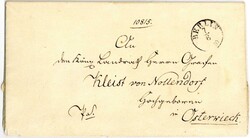 10815.
BERLIN
An
den König. Landrath Herrn Grafen
Kleist von Nollendorf
Hochgeboren
Pal.
zu Osterwieck